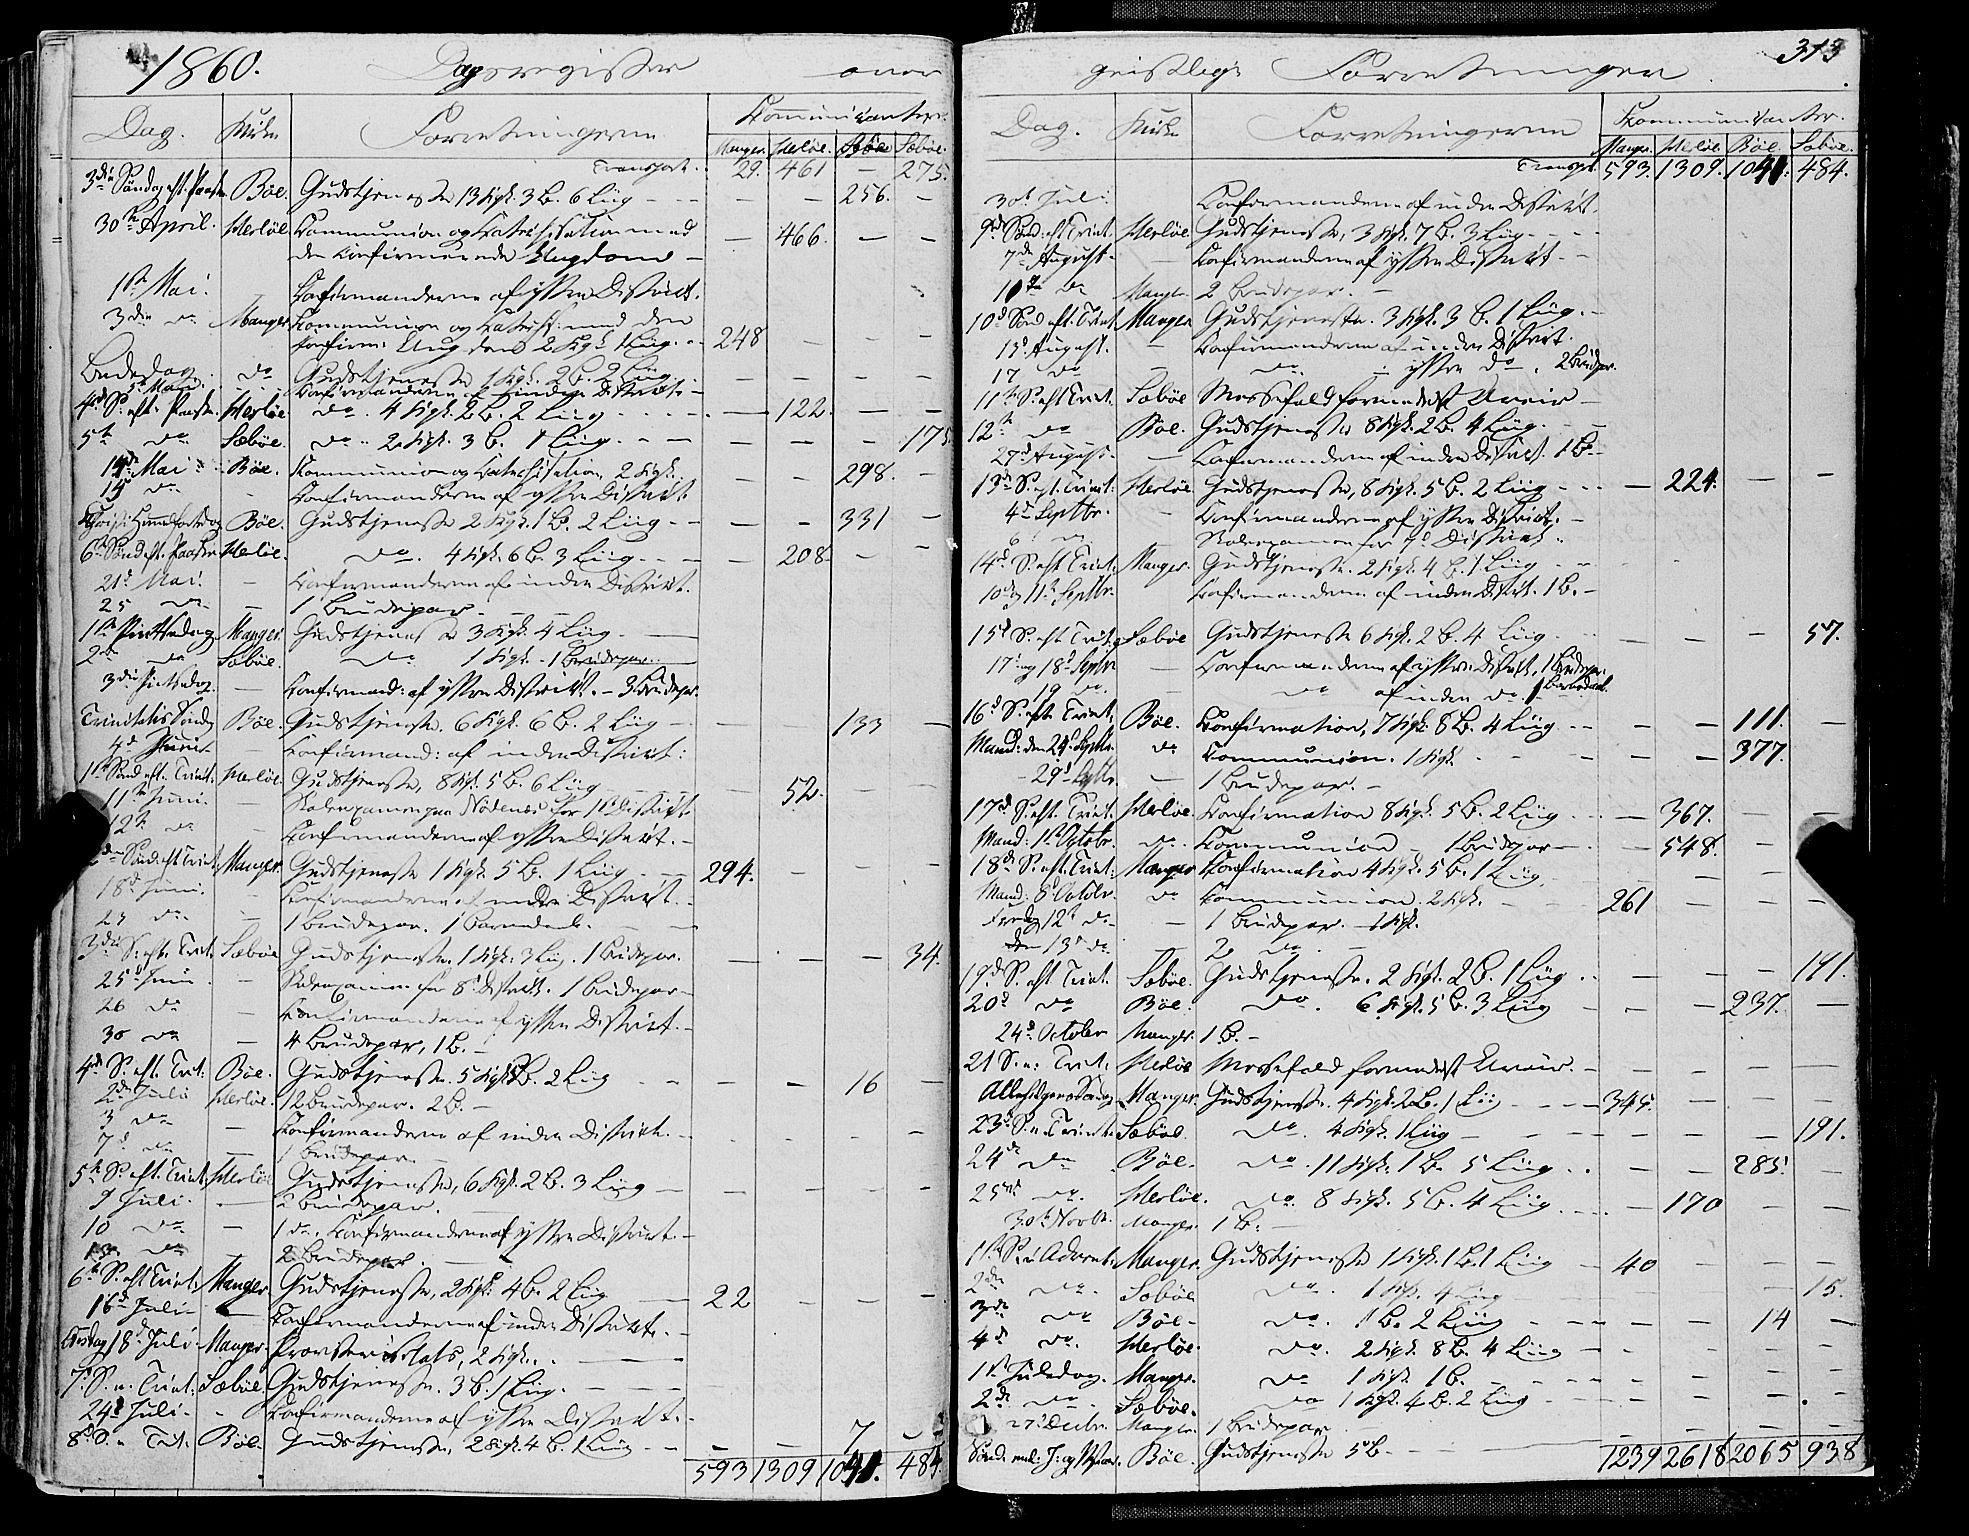 1860. Dagsregister over
Dag. Kirke Forretningerne Kommunikanter.
Manger. Herløe. Bøe Sæbøe.
Transport. 29. 461 — 275.
3die Søndag eft. Paaske Bøe. Gudstjeneste 13 Kgk. 3 B. 6 Liig — — — — 256. —
30te April. Herløe Communion og Katechisation med — 466. — —
den Confirmerede Ungdom —
1ste Mai. — Confirmanderne af yttre District.
3die do Manger Kommunion og Katechis: med den
Confirm: Ungdom 2 Kgk. 1 Liig. — 248 — — —
Bededag. do Gudstjeneste 1 Kgk. 2 B. 2 Liig — — — —
5te Mai. — Confirmanderne af indre District. —
4de S. eft. Paaske Herløe do. 4 Kgk. 2 B. 2 Liig — — 122. — —
5te do Sæbøe. do 2 Kgk. 3 B. 1 Liig. — — — — — 175
14de Mai Bøe. Kommunion og Katechisation, 2 Kgk. — — 298. —
15 do — Confirmanderne af yttre District
Christi Himmelfartsdag Bøe. Gudstjeneste 2 Kgk. 1 B. 2 Liig — — — 331 —
6te Sønd. eft. Paaske Herløe. do. 4 Kgk. 6 B. 3 Liig. — — 208 — —
21de Mai. — Confirmanderne af indre District.
25 do — 1 Brudepar —
1ste Pintsedag Manger. Gudstjeneste 3 Kgk. 4 Liig. —
2den do Sæbøe. do 1 Kgk. - 1 Brudepar. —
3die Pintsedag. — Confirmand: af yttre District. — 3 Brudepar.
Trinitatis Søndag Bøe. Gudstjeneste. 6 Kgk. 6 B. 2 Liig — — — 133 —
4de Juni — Confirmand: af indre District:
1ste Sønd. eft. Trinit: Herløe. Gudstjeneste, 8 Kgk. 5 B. 6 Liig — 52. — —
11te Juni. — Skoleexamen paa for 1ste District
12te do — Confirmanderne af yttre District. —
2den Sønd. eft. Trinit. Manger. Gudstjeneste 1 Kgk. 5 B. 1 Liig — — 294. — — —
18de Juni. — Confirmanderne af indre District. —
23 do — 1 Brudepar. 1 Barnedaab. —
3die S. eft. Trinit. Sæbøe Gudstjeneste. 1 Kgk. 3 Liig. 1 Brudepar. — — — 34.
25de Juni — Skoleexamen for 8de District. 1 Brudepar —
26 do — Confirmanderne af yttre District. —
30 do — 4 Brudepar, 1 B. —
4de S. eft. Trinit: Bøe. Gudstjeneste. 5 Kgk. B. 2 Liig — — — 16 —
2den Juli Herløe. 12 Brudepar. 2 B. —
3 do — Confirmanderne af indre District. —
7de do — 1 Brudepar. —
5te S. eft. Trinit. Herløe Gudstjeneste, 6 Kgk. 2 B. 3 Liig — — — — —
9 Juli. — 2 Brudepar. —
10 do — 1 do. Confirmanderne af yttre District. —
do — 2 Brudepar. —
6te S. eft. Trinit: Manger Gudstjeneste, 2 Kgk. 4 B. 2 Liig — 22 — — —
16de Juli — Confirmanderne af indre District. —
18de Juli. Manger. Provstevisitats, 2 Kgk. —
7de S. e. Trinit. Sæbøe. Gudstjeneste. 3 B. 1 Liig. —
24de Juli. — Confirmanderne af yttre District. —
8de S. e. Trin. Bøe. Gudstjeneste, 2 Kgk. 4 B. 1 Liig — — — 7 —
593 1309 1041. 484.
geistlige Forretninger. 313
Dag. Kirke Forretningerne Kommunikanter.
Manger. Herløe. Bøe. Sæbøe.
Transpt. 593. 1309. 1041. 484.
30te Juli Confirmanderne af indre District.
9de Sønd: eft. Trinit. Herløe. Gudstjeneste, 3 Kgk. 7 B. 3 Liig —
7de August. — Confirmanderne af yttre District. —
do Manger 2 Brudepar. —
10de Sønd. eft. Trinit. Manger Gudstjeneste. 3 Kgk. 3 B. 1 Liig. —
13de August. — Confirmanderne af indre District.
17 do — do — yttre do. 2 Brudepar.
11te S. eft. Trinit. Sæbøe Messefald formedelst Uveir —
12te do Bøe. Gudstjeneste 8 Kgk. 2 B. 4 Liig. —
27de August. — Confirmanderne af indre District. 1 B. —
13de S. eft. Trinit: Herløe. Gudstjeneste, 8 Kgk. 5 B. 2 Liig — — 224. — —
4de Septbr. — Confirmanderne af yttre District. —
6 do Skoleexamen for 7de District. —
14de S. eft. Trinit: Manger. Gudstjeneste. 2 Kgk. 4 B. 1 Liig —
10de og 11te Septbr. Confirmanderne af indre District. 1 B. —
15de S. eft. Trinit. Sæbøe Gudstjeneste 6 Kgk. 2 B. 4 Liig. — — — 57.
17de og 18de Septbr — Confirmanderne af yttre District, 1 Brudepar.
19 do. — do af indre do. 1 Barnedaab.
16de S. eft. Trinit. Bøe. Confirmation, 7 Kgk. 8 B. 4 Liig — — — 111. —
Mand: den 24de Septbr. do Communion. 1 Kgk. — — — 377.
— 29de Septbr. — 1 Brudepar. —
17de S. eft. Trinit. Herløe. Confirmation 8 Kgk. 5 B. 2 Liig — — 367. — —
Mand: 1ste Octobr. do. Communion — 1 Brudepar — — 548. —
18de S. eft. Trinit: Manger Confirmation 4 Kgk. 5 B. 1 Liig — — —
Mand: 8de Octobr. do Communion. 2 Kgk. — 261 — — —
Fredag 12te do — 1 Brudepar. 1 Kgk.
den 13de do — 2 do —
19de S. eft. Trinit. Sæbøe. Gudstjeneste. 2 Kgk. 2 B. 1 Liig — — — — 191.
20de do Bøe. do. 6 Kgk. 5 B. 3 Liig — — 237. —
24de October Manger. 1 B. —
21 S. e. Trinit. Herløe Messefald formedelst Uveir. — — — —
Allehelgens Søndag Manger. Gudstjeneste. 4 Kgk. 2 B. 1 Liig — 345. — — —
23de S. e. Trinit. Sæbøe. do. 4 Kgk. 1 Liig — — — — 191.
24de do Bøe. do. 11 Kgk. 1 B. 5 Liig — — 285. —
25de do. Herløe. do. 8 Kgk. 5 B. 4 Liig — — 170 — —
30te Novbr. Manger. 1 B. —
1ste S. i Advent. Manger. Gudstjeneste 1 Kgk. 1 B. 1 Liig — 40 — — —
2den do. Sæbøe do. 1 Kgk. 4 Liig — — — 15.
3die do Bøe — do. 1 B. 2 Liig — — — 14 —
4de do. Herløe. do. 2 Kgk. 8 B. 4 Liig — — — —
1ste Juledag. Manger. do 1 Kgk. 1 B. — — — —
2den do. Sæbøe. do 1 Kgk. 4 B. 2 Liig — — — —
27de Decbr. Manger. 1 Brudepar.
Sønd. mel. J. og Nytaar. Bøe. Gudstjeneste 5 B — 1239 2618 2065 938